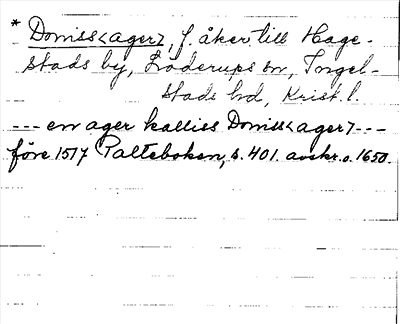 * Domss<ager>, f. åker till Hage-
stads by, Löderups sn, Ingel-
stads hd, Krist. l.
--- en ager kalliss Domss<ager> ---
före 1517 Palteboken, s. 401. avskr. o. 1650.